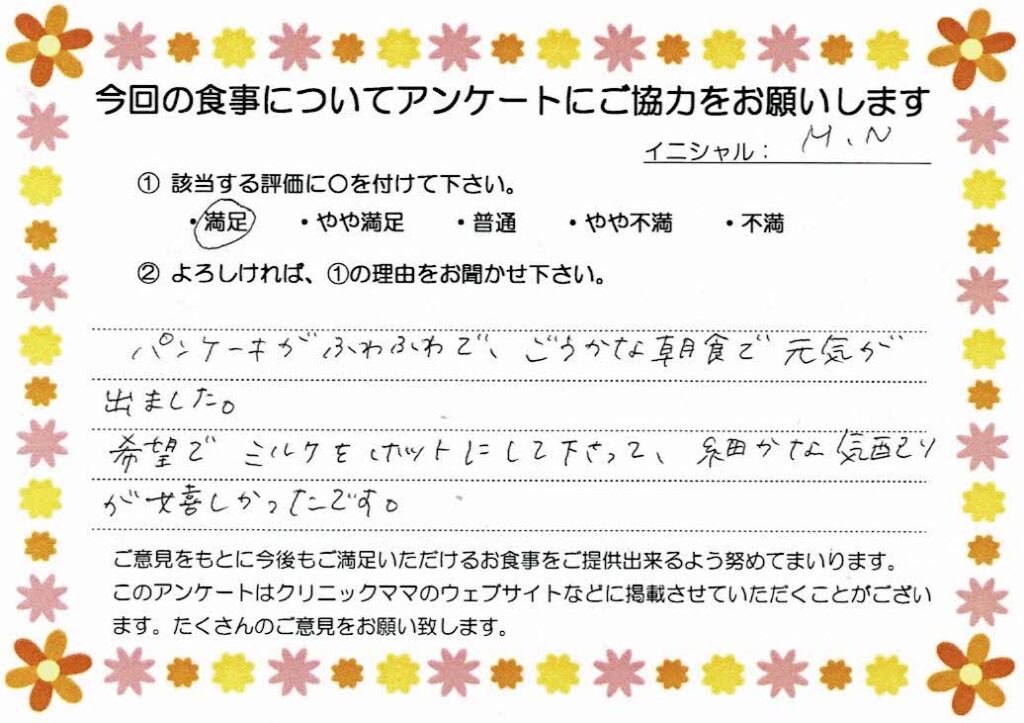 今回の食事についてアンケートにご協力をお願いします
イニシャル： M、N
① 該当する評価に〇を付けて下さい。
・満足 ・やや満足 ・普通 ・やや不満 ・不満
② よろしければ、①の理由をお聞かせ下さい。
パンケーキがふわふわで、ごうかな朝食で元気が
出ました。
希望でミルクをホットにして下さって、細かな気配り
が嬉しかったです。
ご意見をもとに今後もご満足いただけるお食事をご提供出来るよう努めてまいります。
このアンケートはクリニックママのウェブサイトなどに掲載させていただくことがござい
ます。たくさんのご意見をお願い致します。